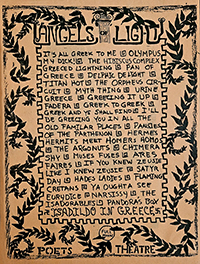 ANGELS OF LIGHT
IT'S ALL GREEK TO ME ⊙ OLYMPUS
MY DUCK ⊙ THE HIBISCUS COMPLEX
GREECED LIGHTNING ⊙ PAN OF
GREECE ⊙ DELPHIC DELIGHT ⊙
TITAN HOT ⊙ THE ORPHEUS CIR
CUIT ⊙ MYTH THING ⊙ URINE
GREECE ⊙ GREECING IT UP ⊙
FADERA ⊙ GREEK TO GREEK ⊙
GREEK AND YE SHALL FIND ⊙ I'LL
BE GREECING YOU IN ALL THE
OLD FAMILIAR PLACES ⊙ PANTIES
OF THE PARTHENON ⊙ HERMES
HERMITS MEET HOMERS HOMOS
⊙ THE ARGONUTS ⊙ CHIMERA
SHY ⊙ MUSES FUSES ⊙ ARES
TAIRES ⊙ IF YOU KNEW ZEUSIE
LIKE I KNEW ZEUSIE ⊙ SATYR
DAY ⊙ HADES LADIES ⊙ FLAMING
CRETANS ⊙ YA OUGHTA SEE
EURYDICE ⊙ NARSISSY ⊙ THE
ISADORABLES ⊙ PANDORAS BOX
ISADILDO IN GREECE
POETS THEATRE